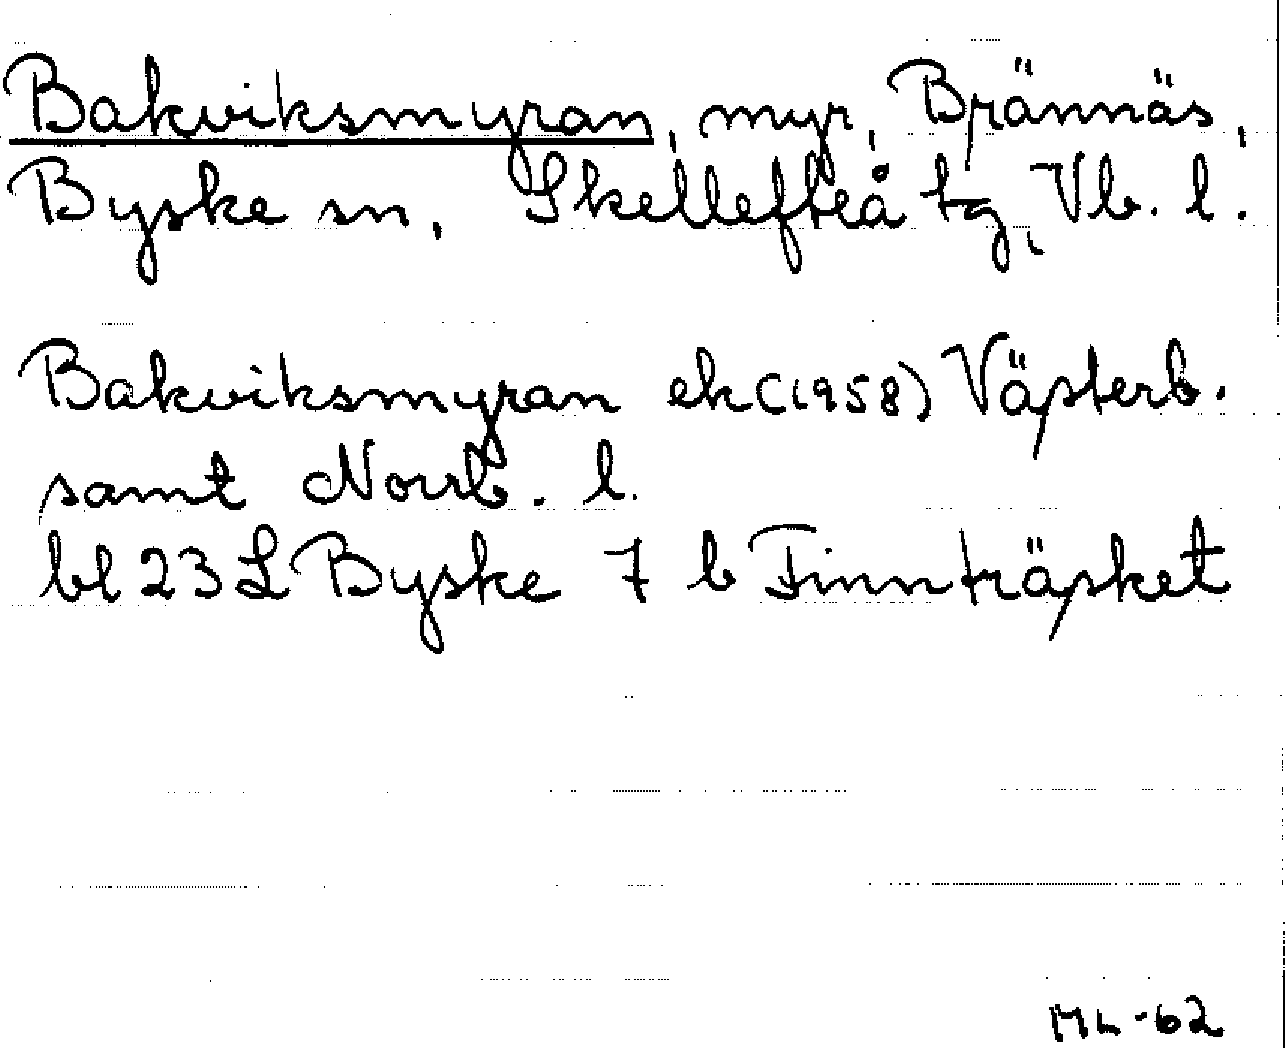 Bakviksmyran, myr, Brännäs,
Byske sn, Skellefteå tg, Vb. l.
Bakviksmyran ek (1958) Västerb.
samt Norrb. l.
bl 23 L Byske 7 b Finnträsket
ML-62